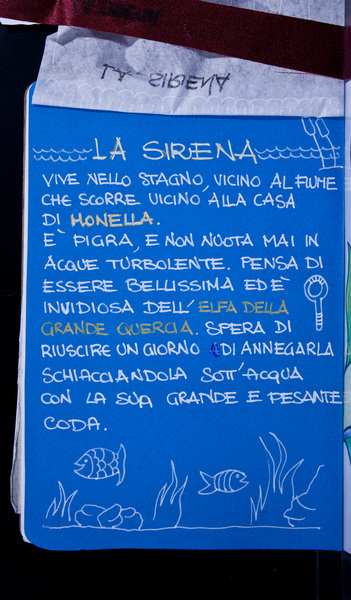 LA SIRENA
LA SIRENA
VIVE NELLO STAGNO, VICINO AL FIUME
CHE SCORRE VICINO ALLA CASA
DI MONELLA.
E' PIGRA, E NON NUOTA MAI IN
ACQUE TURBOLENTE. PENSA DI
ESSERE BELLISSIMA ED È
INVIDIOSA DELL'ELFA DELLA
GRANDE QUERCIA. SPERA DI
RIUSCIRE UN GIORNO DI ANNEGARLA
SCHIACCIANDOLA SOTT'ACQUA
CON LA SUA GRANDE E PESANTE
CODA.